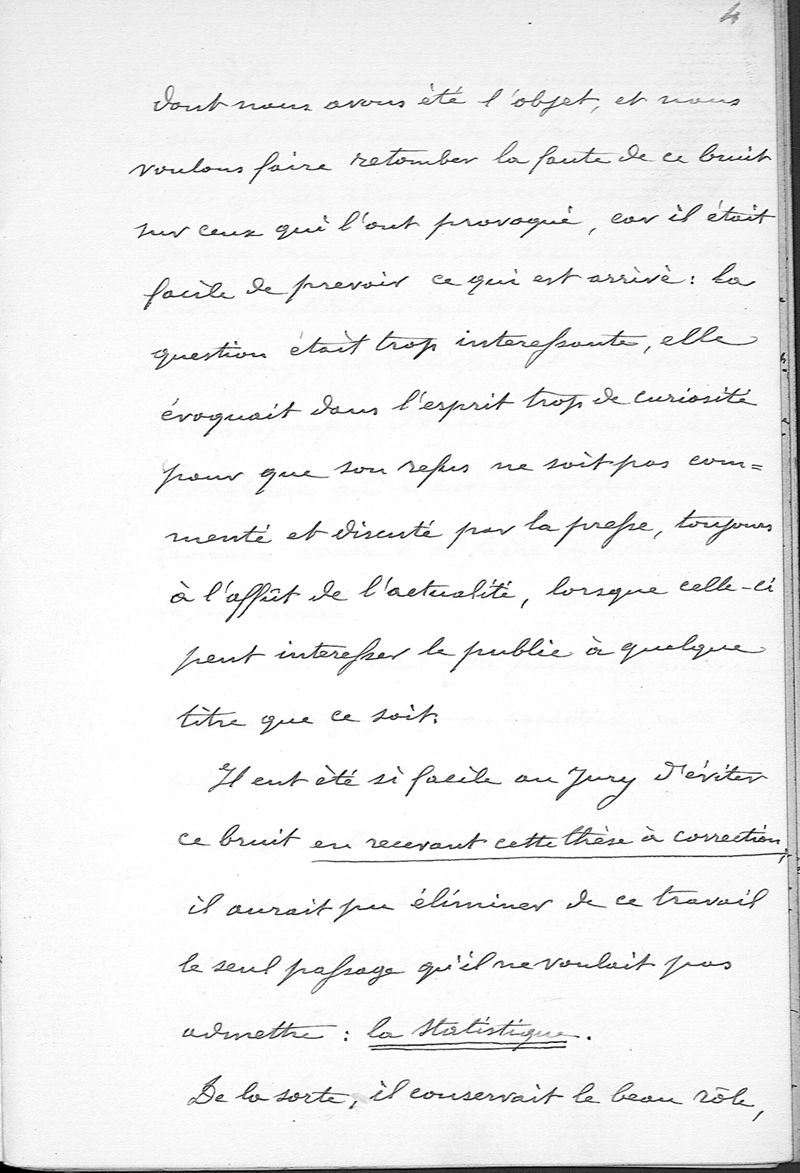 4
dont nous avons été l'objet, et nous
voulons faire retomber la faute de ce bruit
sur ceux qui l'ont provoqué, car il était
facile de prevoir ce qui est arrivé : la
question était trop interessante, elle
évoquait dans l'esprit trop de curiosité
pour que son refus ne soit pas com=
menté et discuté par la presse, toujours
à l'affût de l'actualité, lorsque celle-ci
peut interesser le public à quelque
titre que ce soit.
Il eut été si facile au Jury d'éviter
ce bruit en recevant cette thèse à correction,
il aurait pu éliminer de ce travail
le seul passage qu'il ne voulait pas
admettre : la statistique.
De la sorte, il conservait le beau rôle,